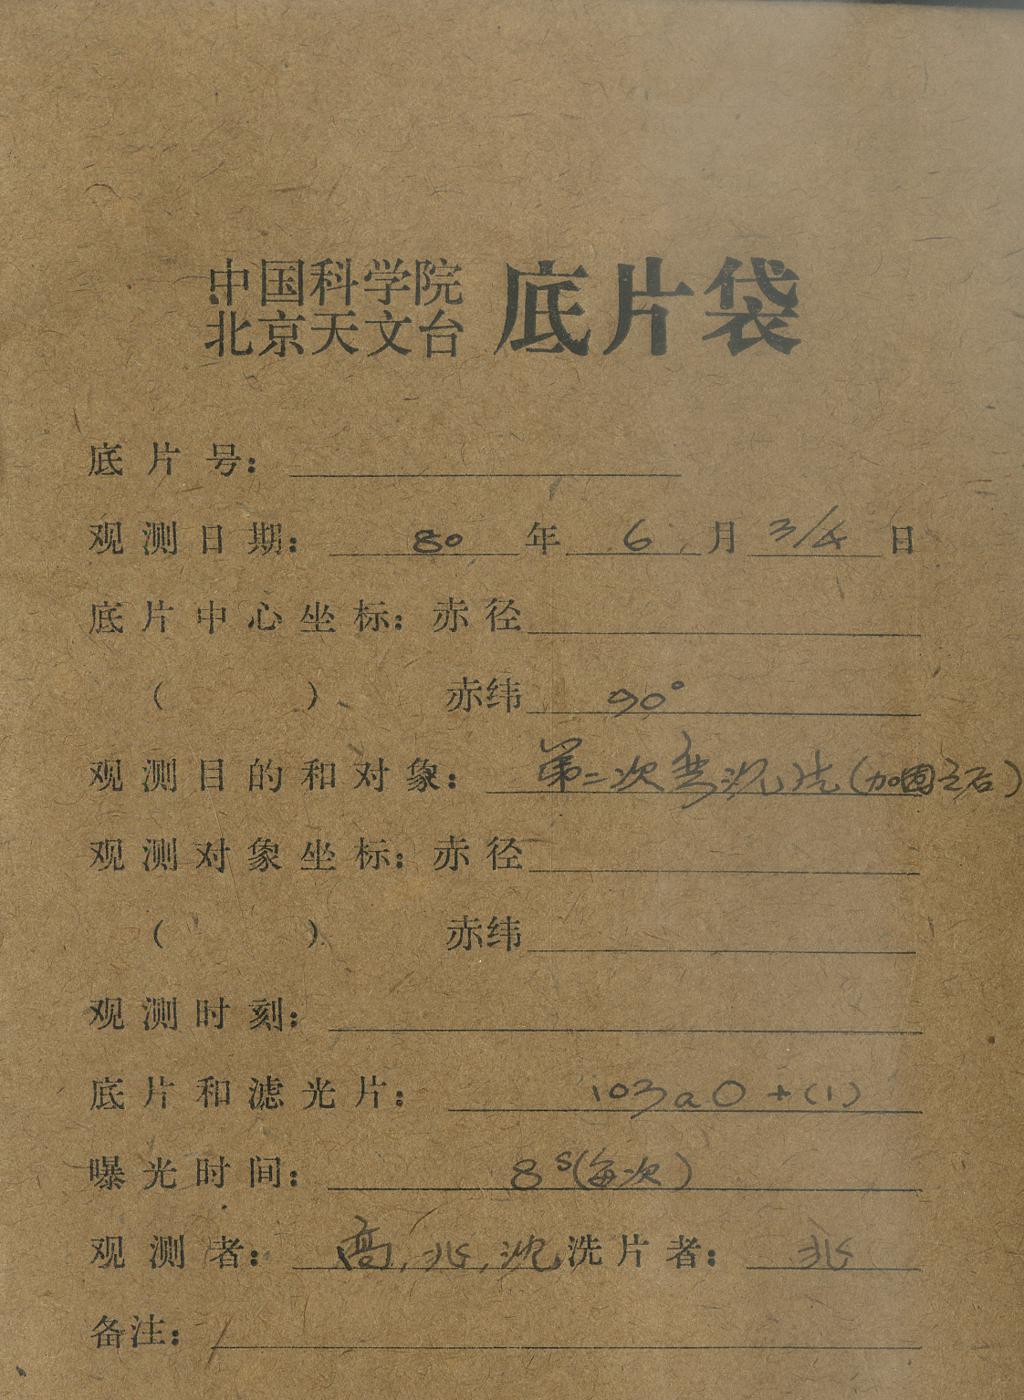 中国科学院
北京天文台
底片袋
底片号：
观测日期： 80 年 6 月 3/4 日
底片中心坐标：赤径
（ ） 赤纬 90°
观测目的和对象： 第二次弯沉试（加固之后）
观测对象坐标：赤径
（ ） 赤纬
观测时刻：
底片和滤光片： 103aO+(1)
曝光时间： 8s(每次)
观测者： 高, 兆, 沈 洗片者： 兆
备注：